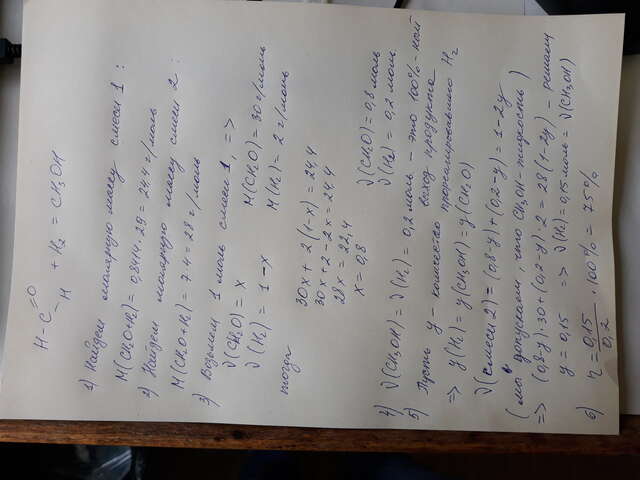 H-C=O
H + H₂ = CH₃OH
1) Найдем молярную массу смеси 1:
M(CH₂O+H₂) = 0,8414·29 = 24,4 г/моль
2) Найдем молярную массу смеси 2:
M(CH₂O+H₂) = 7·4 = 28 г/моль
3) Возьмем 1 моль смеси 1, =>
ν(CH₂O) = x M(CH₂O) = 30 г/моль
ν(H₂) = 1-x M(H₂) = 2 г/моль
тогда
30x + 2(1-x) = 24,4
30x + 2 - 2x = 24,4
28x = 22,4
x = 0,8 ν(CH₂O) = 0,8 моль
ν(H₂) = 0,2 моль
4) ν(CH₃OH) = ν(H₂) = 0,2 моль - это 100%-ный
выход продукта
5) Пусть y - количество прореагировавшего H₂
=> y(H₂) = y(CH₃OH) = y(CH₂O)
ν(смеси 2) = (0,8-y)+(0,2-y) = 1-2y
(мы допускаем, что CH₃OH-жидкость)
=> (0,8-y)·30+(0,2-y)·2 = 28(1-2y) - решаем
y = 0,15 => ν(H₂) = 0,15 моль = ν(CH₃OH)
6) η = 0,15/0,2 · 100% = 75%